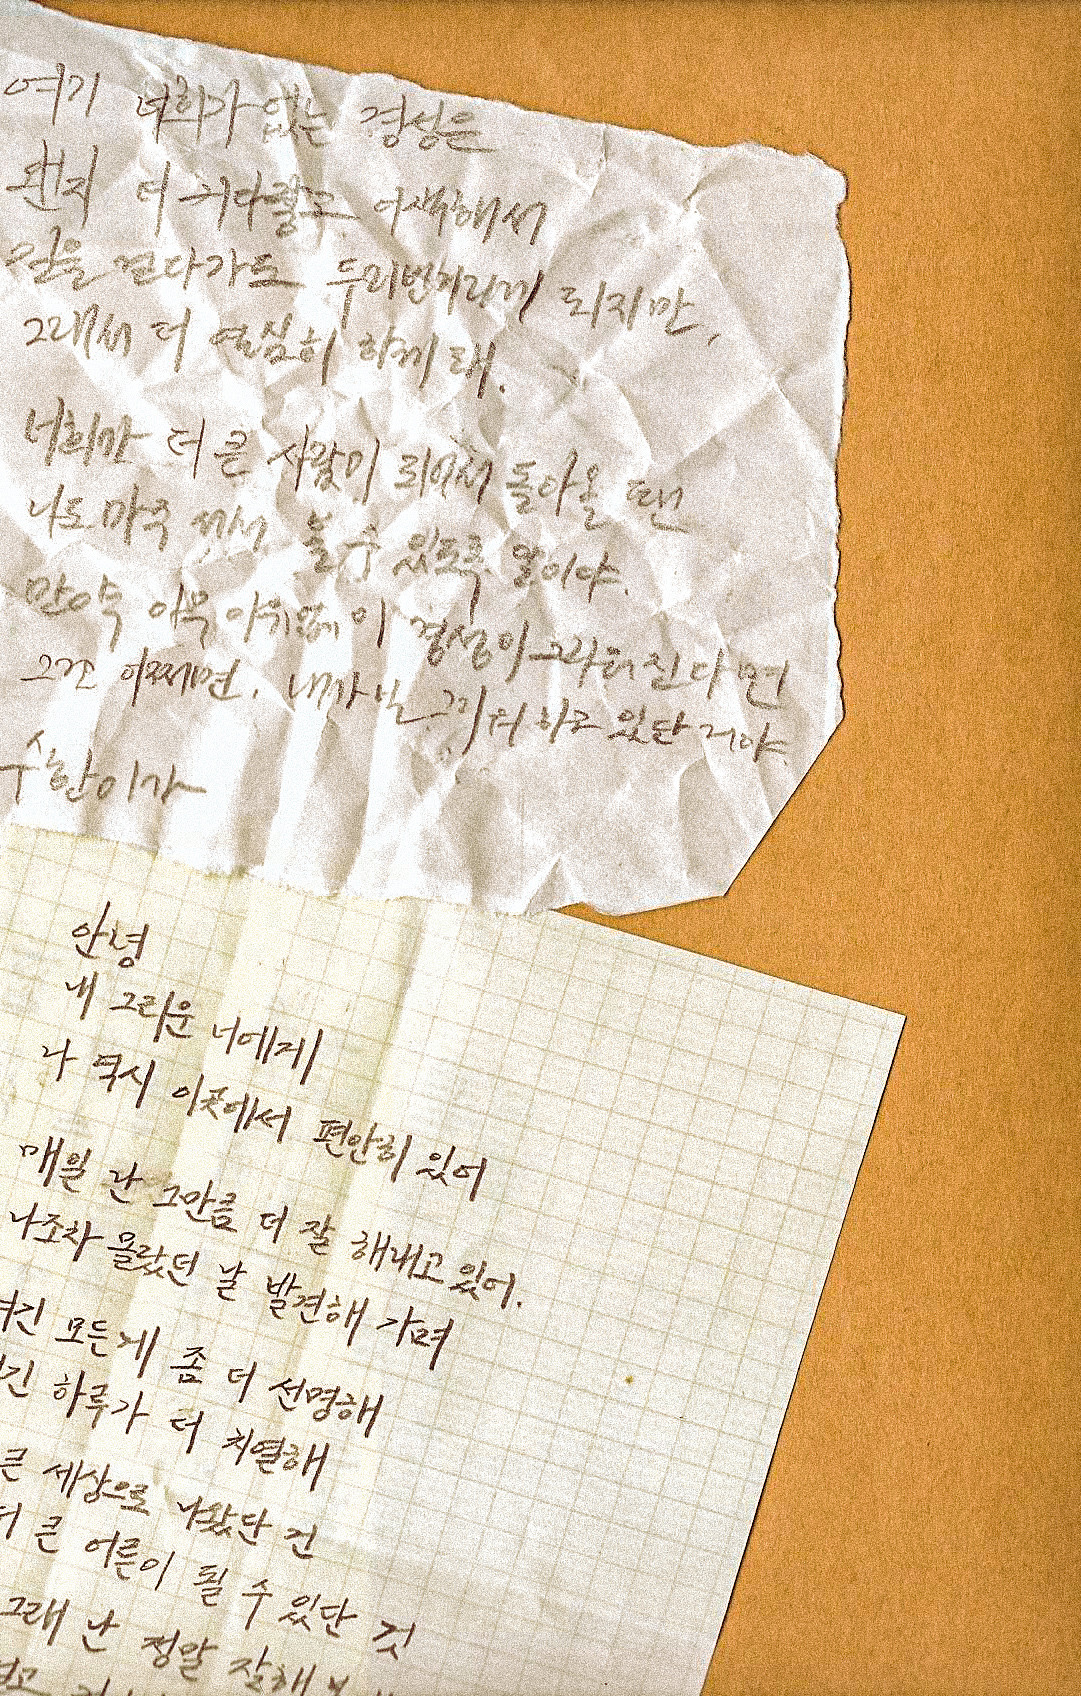 여기 너희가 없는 경성은
왠지 더 커다랗고 어색해서
길을 걷다가도 두리번거리게 되지만,
그래서 더 열심히 할게 래.
너희만 더 큰 사람이 되어서 돌아올 땐
나도 마주 서서 웃을 수 있도록 말이야.
만약 아무 이유 없이 이 경성이 그리워진다면
그건 어쩌면, 내가 널 그리워 하고 있단 거야.
수한이가
안녕
내 그리운 너에게
나 역시 이곳에서 편안히 있어
매일 난 그만큼 더 잘 해내고 있어.
나조차 몰랐던 날 발견해 가며
여긴 모든게 좀 더 선명해
긴 하루가 더 치열해
큰 세상으로 나왔단 건
더 큰 어른이 될 수 있단 것
그래 난 정말 잘해